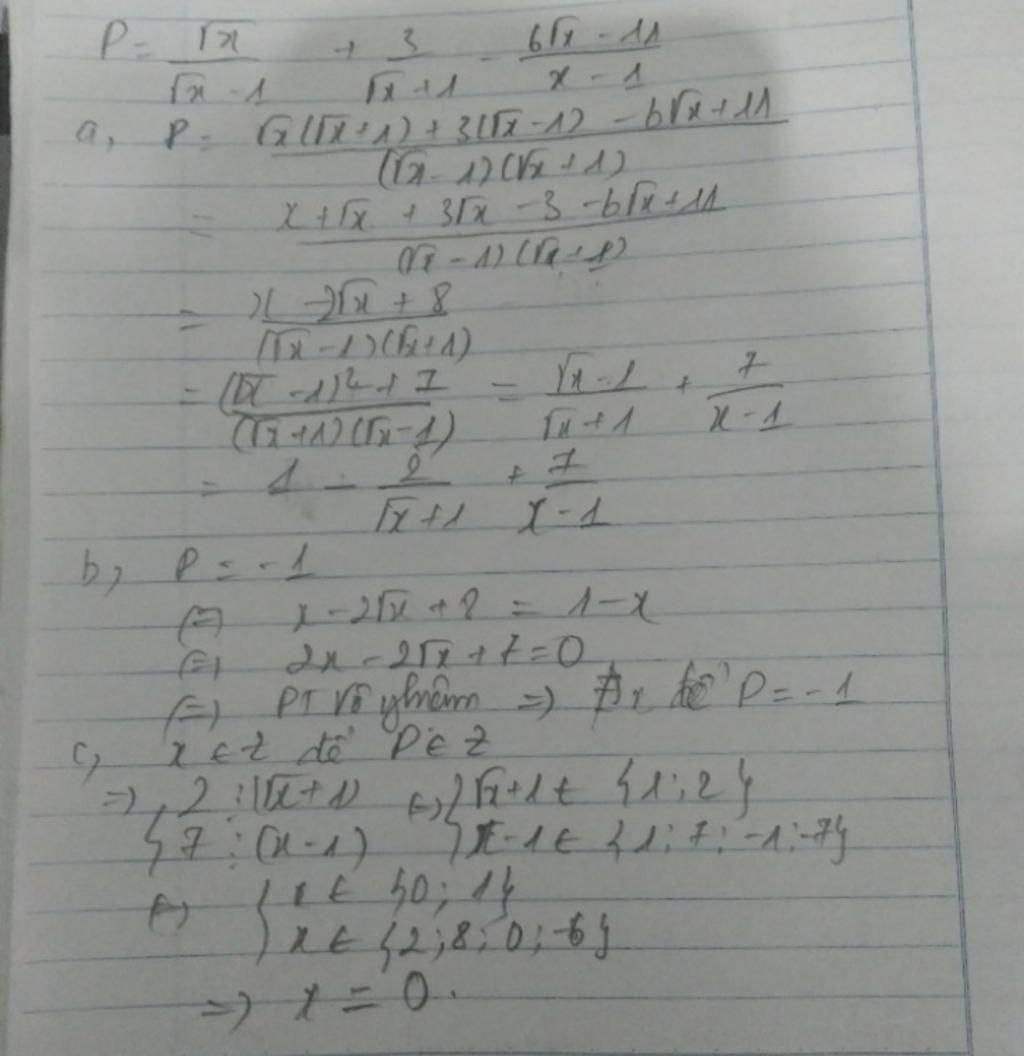 P = √x/(√x - 1) + 3/(√x + 1) - (6√x - 11)/(x - 1)
a, P = (√x(√x + 1) + 3(√x - 1) - 6√x + 11)/((√x - 1)(√x + 1))
= (x + √x + 3√x - 3 - 6√x + 11)/((√x - 1)(√x + 1))
= (x - 2√x + 8)/((√x - 1)(√x + 1))
= ((√x - 1)² + 7)/((√x + 1)(√x - 1)) = (√x - 1)/(√x + 1) + 7/(x - 1)
= 1 - 2/(√x + 1) + 7/(x - 1)
b, P = -1
(=) x - 2√x + 8 = 1 - x
(=) 2x - 2√x + 7 = 0
(=) PT Vô nghiệm => ∄ x để P = -1
c, x ∈ Z để P ∈ Z
=> { 2 ⋮ (√x + 1) (=) { √x + 1 ∈ {1; 2}
{ 7 ⋮ (x - 1) { x - 1 ∈ {1; 7; -1; -7}
(=) { x ∈ {0; 1}
{ x ∈ {2; 8; 0; -6}
=> x = 0.